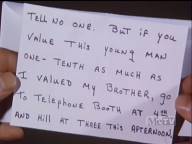 TELL NO ONE. BUT IF YOU
VALUE THIS YOUNG MAN
ONE-TENTH AS MUCH AS
I VALUED MY BROTHER, GO
TO TELEPHONE BOOTH AT 4TH
AND HILL AT THREE THIS AFTERNOON.
MeTV